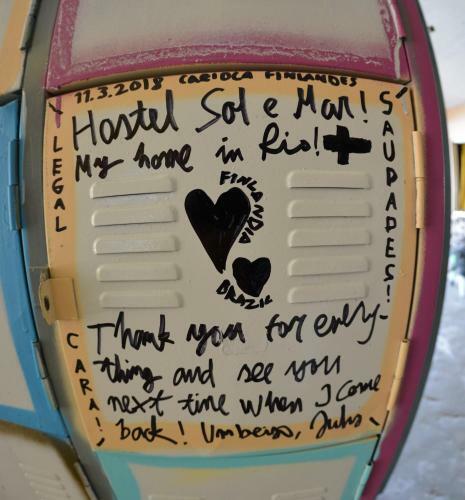 11.3.2018 CARIOCA FINLANDES
Hostel Sol e Mar!
My home in Rio!
LEGAL
SAUDADES!
FINLANDIA
BRAZIL
CARA!
Thank you for every-
thing and see you
next time when I come
back! Um beijo,